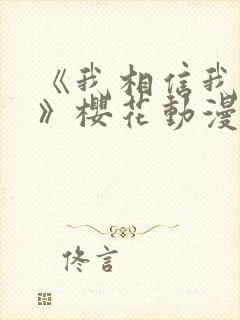 《我相信我
》櫻花動漫
佟言